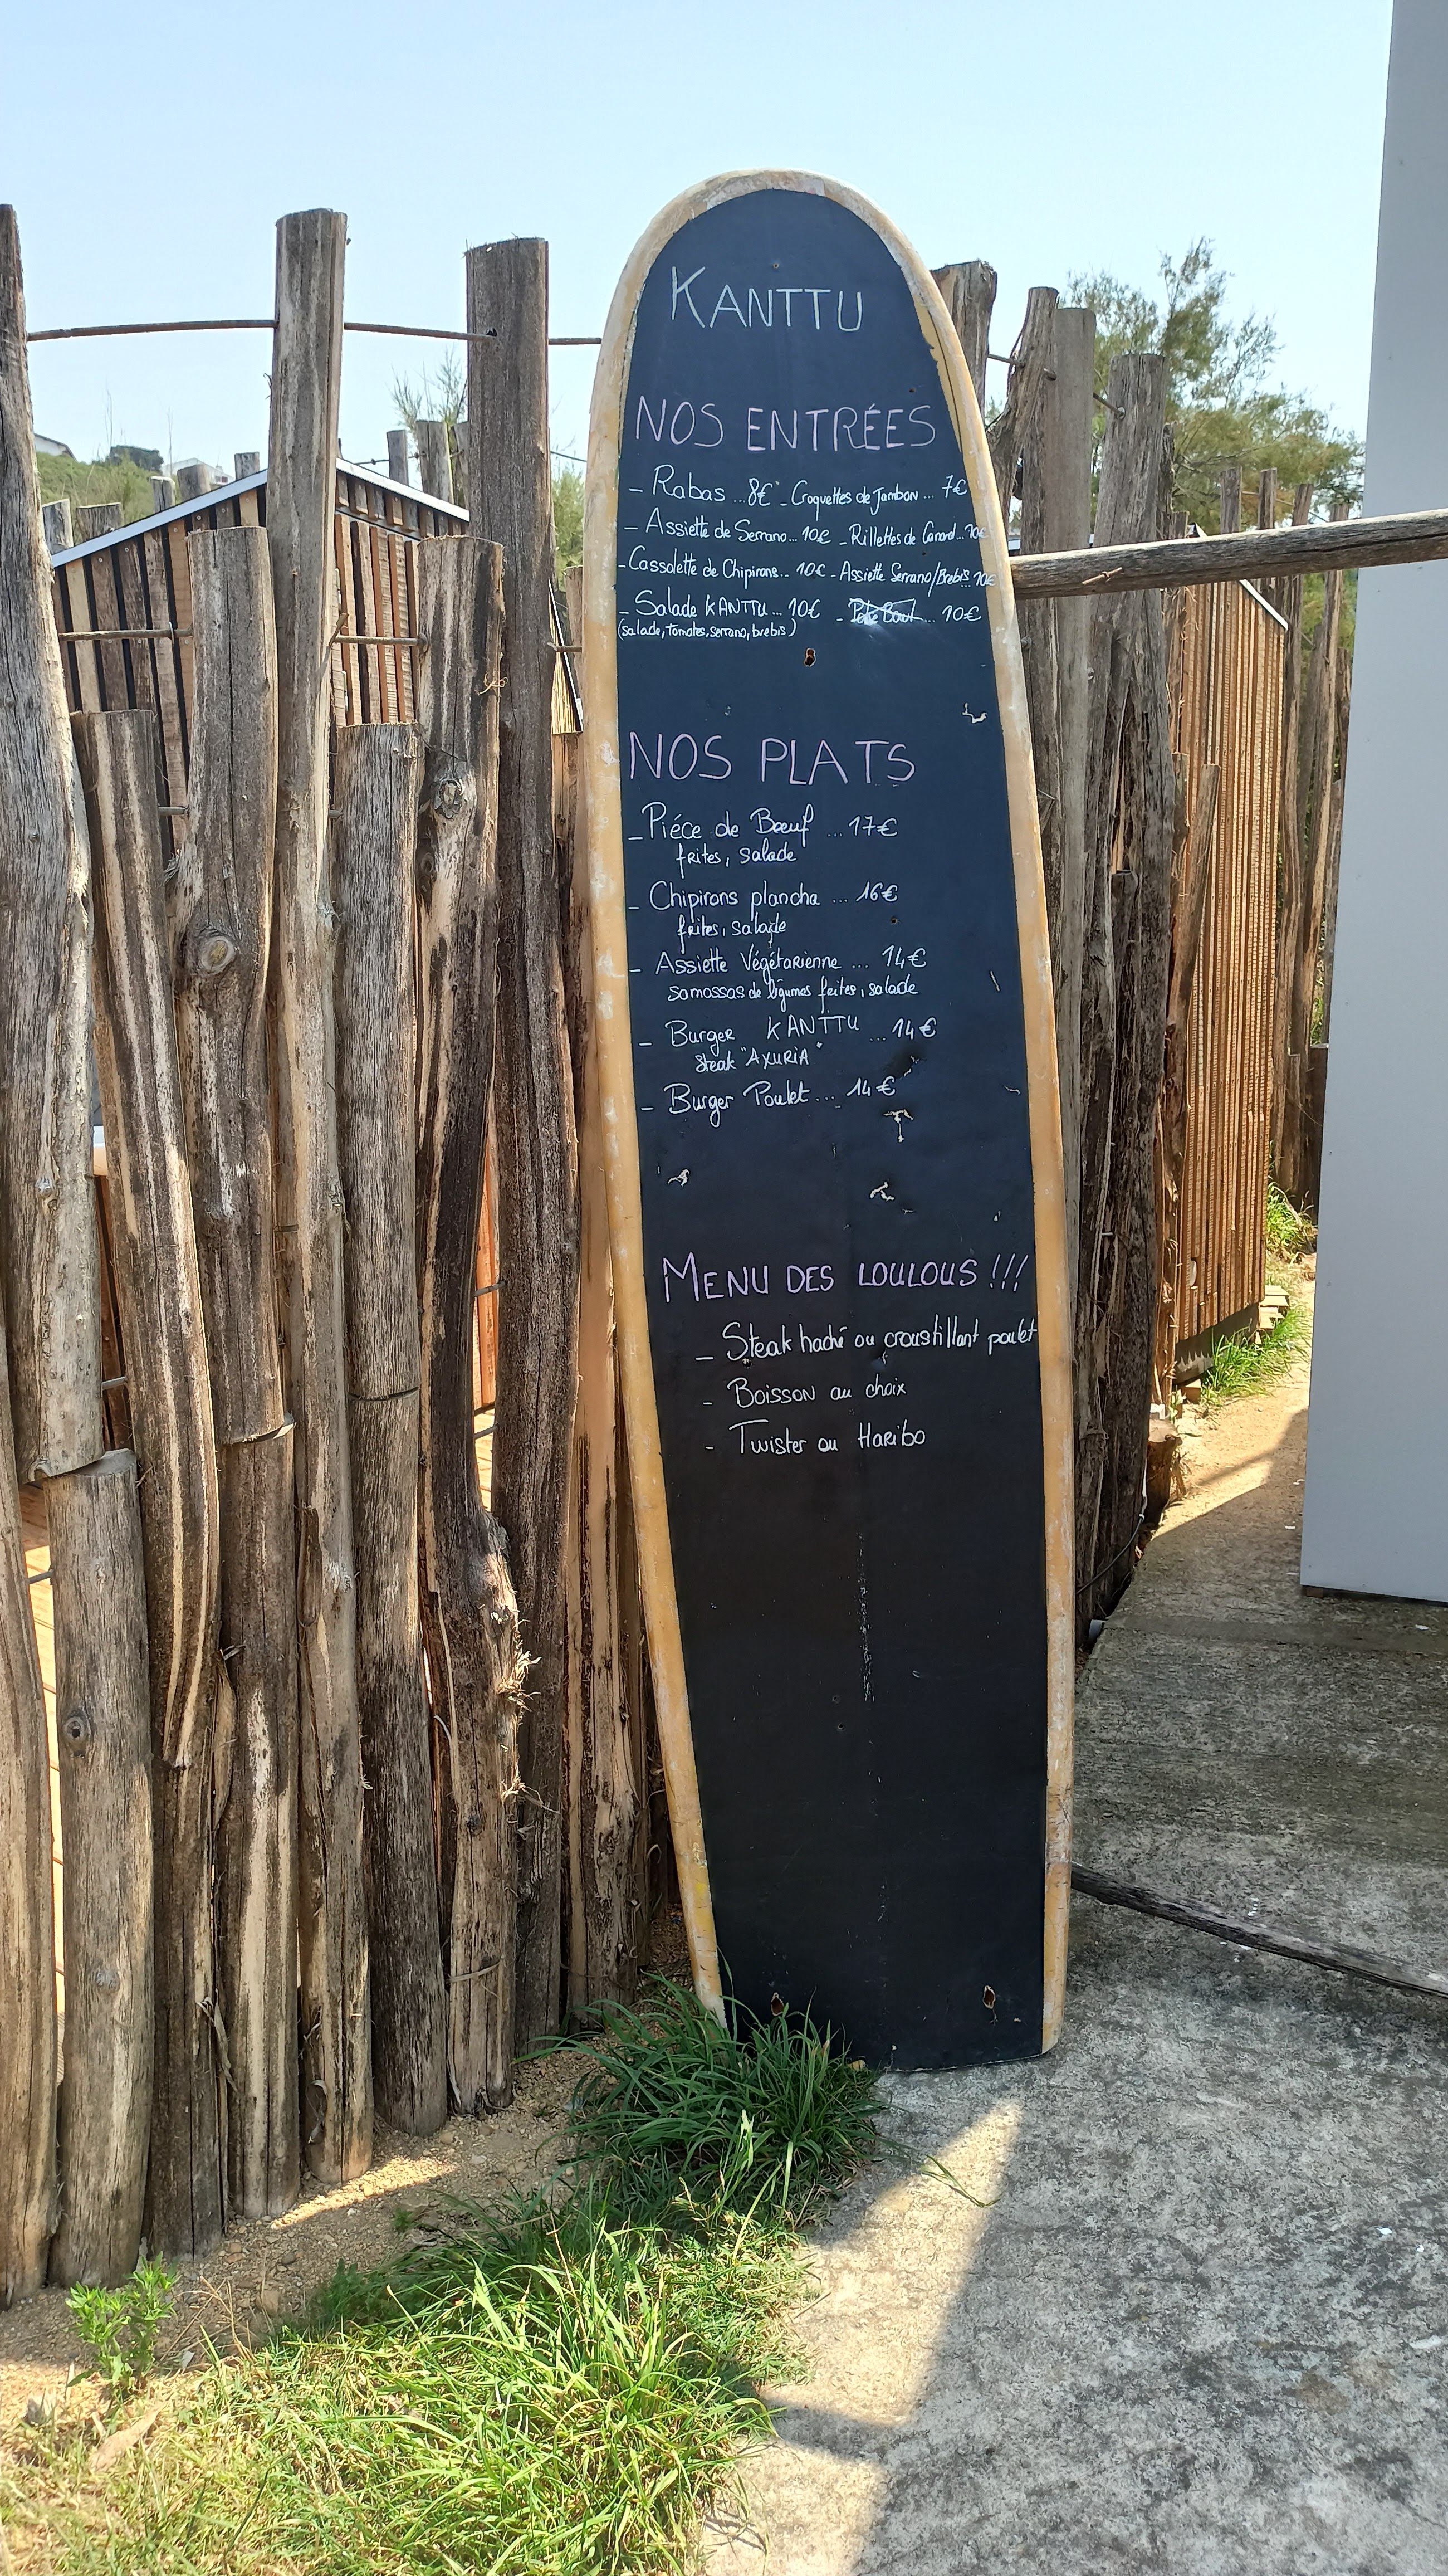 KANTTU
NOS ENTRÉES
- Rabas ... 8€ - Croquettes de Jambon ... 7€
- Assiette de Serrano ... 10€ - Rillettes de Canard ... 10€
- Cassolette de Chipirons ... 10€ - Assiette Serrano/Brebis ... 10€
- Salade KANTTU ... 10€ - ... 10€
(salade, tomates, serrano, brebis)
NOS PLATS
- Piéce de Bœuf ... 17€
frites, salade
- Chipirons plancha ... 16€
frites, salade
- Assiette Végétarienne ... 14€
samossas de légumes frites, salade
- Burger KANTTU ... 14€
steak "AXURIA"
- Burger Poulet ... 14€
MENU DES LOULOUS !!!
- Steak haché ou croustillant poulet
- Boisson au choix
- Twister ou Haribo